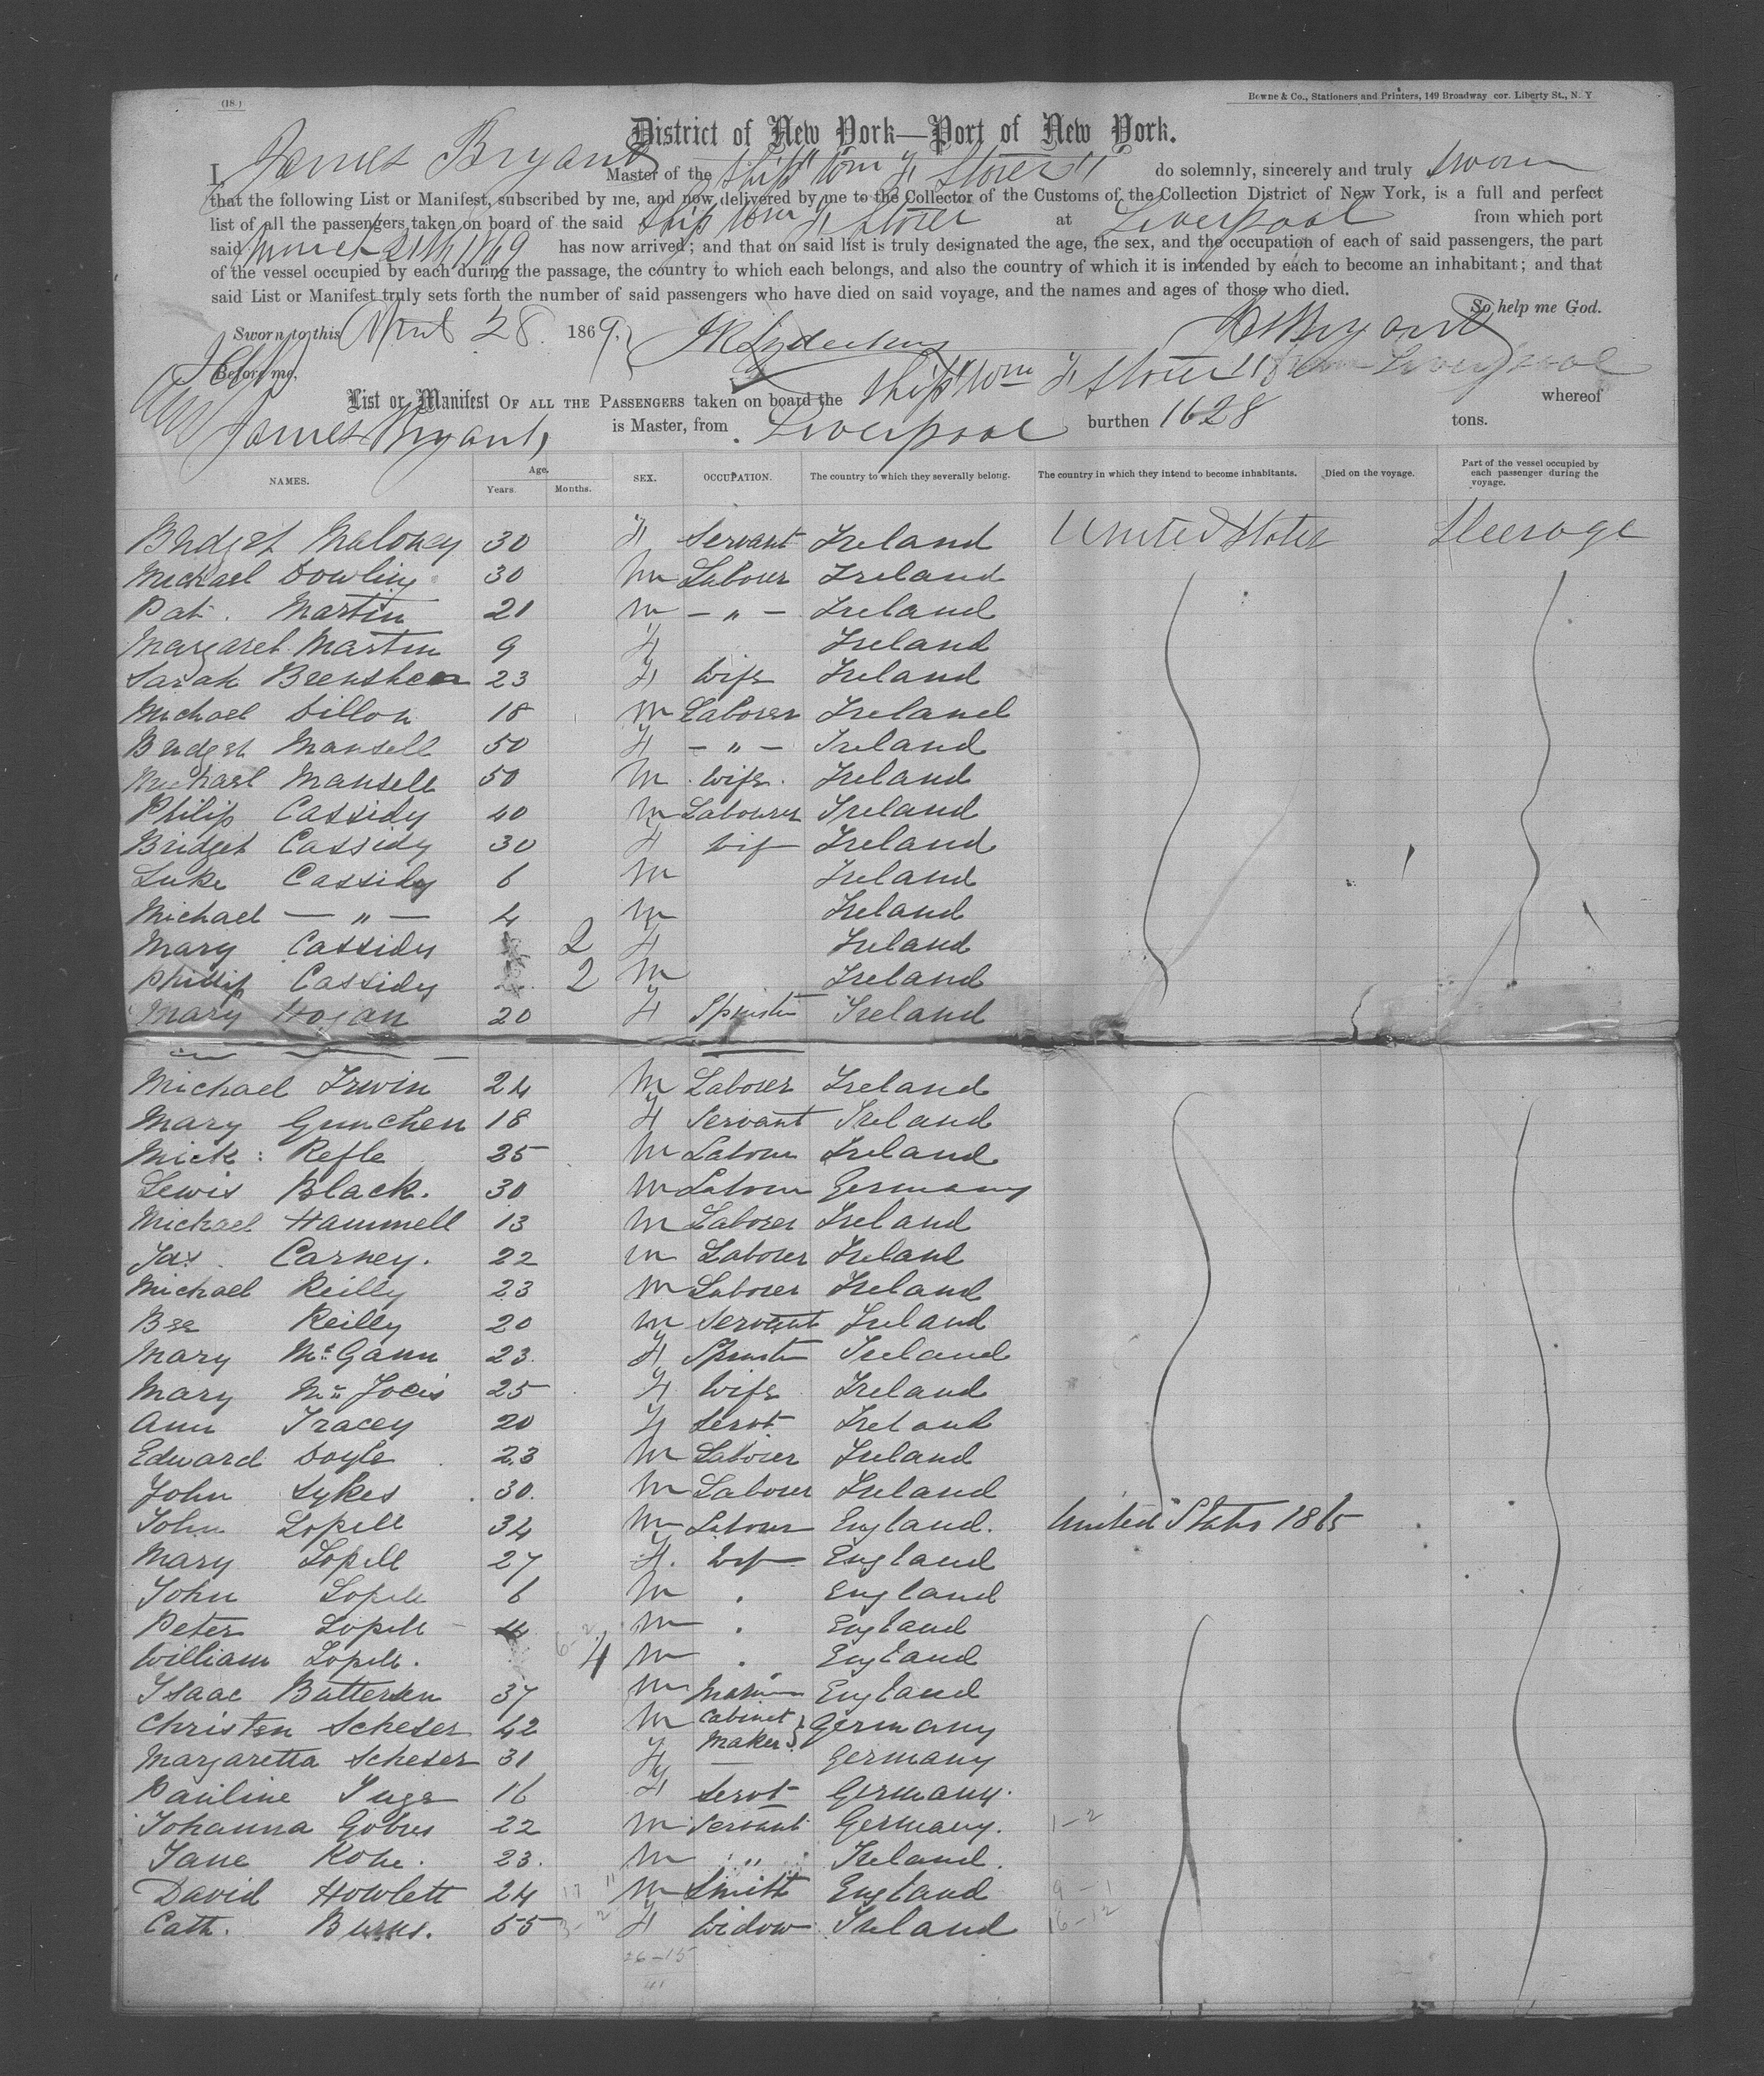 (18.)
Bowne & Co., Stationers and Printers, 149 Broadway cor. Liberty St., N. Y
District of New York—Port of New York.
I, James Bryant Master of the Ship "Wm F Storer" do solemnly, sincerely and truly swear
that the following List or Manifest, subscribed by me, and now delivered by me to the Collector of the Customs of the Collection District of New York, is a full and perfect
list of all the passengers taken on board of the said Ship Wm F Storer at Liverpool from which port
said 1869 has now arrived; and that on said list is truly designated the age, the sex, and the occupation of each of said passengers, the part
of the vessel occupied by each during the passage, the country to which each belongs, and also the country of which it is intended by each to become an inhabitant; and that
said List or Manifest truly sets forth the number of said passengers who have died on said voyage, and the names and ages of those who died.
So help me God.
Sworn to this April 28 1869,
Before me,
List or Manifest OF ALL THE PASSENGERS taken on board the Ship "Wm F Storer" from Liverpool whereof
James Bryant, is Master, from Liverpool burthen 1628 tons.
NAMES. Age. Years. Months. SEX. OCCUPATION. The country to which they severally belong. The country in which they intend to become inhabitants. Died on the voyage. Part of the vessel occupied by each passenger during the voyage.
Bridget Maloney 30 F Servant Ireland United States Steerage
Michael Dowling 30 M Laborer Ireland
Pat. Martin 21 M — " — Ireland
Margaret Martin 9 F Ireland
Sarah 23 F Wife Ireland
Michael Dillon 18 M Laborer Ireland
Bridget Mansell 50 F — " — Ireland
Michael Mansell 50 M Wife Ireland
Philip Cassidy 40 M Labourer Ireland
Bridget Cassidy 30 F Wif Ireland
Luke Cassidy 6 M Ireland
Michael — " — 4 M Ireland
Mary Cassidy 2 F Ireland
Phillip Cassidy 2 M Ireland
Mary Hogan 20 F Spinster Ireland
Michael Irwin 24 M Laborer Ireland
Mary Gunchen 18 F Servant Ireland
Mick : Refle 25 M Labour Ireland
Lewis Black. 30 M Labour Germany
Michael Hammell 13 M Laborer Ireland
Jas. Carney. 22 M Laborer Ireland
Michael Reilly 23 M Laborer Ireland
Bee Reilly 20 M Servant Ireland
Mary McGann 23. F Spinster Ireland
Mary 25 F Wife Ireland
Ann Tracey 20 F Servt Ireland
Edward Doyle 23 M Laborer Ireland
John Sykes 30. M Laborer Ireland
John Lopell 34 M Labour England. United States 1865
Mary Lopell 27 F. Wif England
John Lopell 6 M England
Peter Lopell 4 M England
William Lopell. 4 M England
Isaac 37 M England
Christen Scheser 42 M Cabinet Maker Germany
Margaretta Scheser 31 F — Germany
Pauline 16 F Servt Germany.
Johanna 22 M Servant Germany. 1-2
Jane 23. M " Ireland.
David Howlett 24 M Smith England 9-1
Cath. Burns. 55 F Widow Ireland 16-12
26-15
41